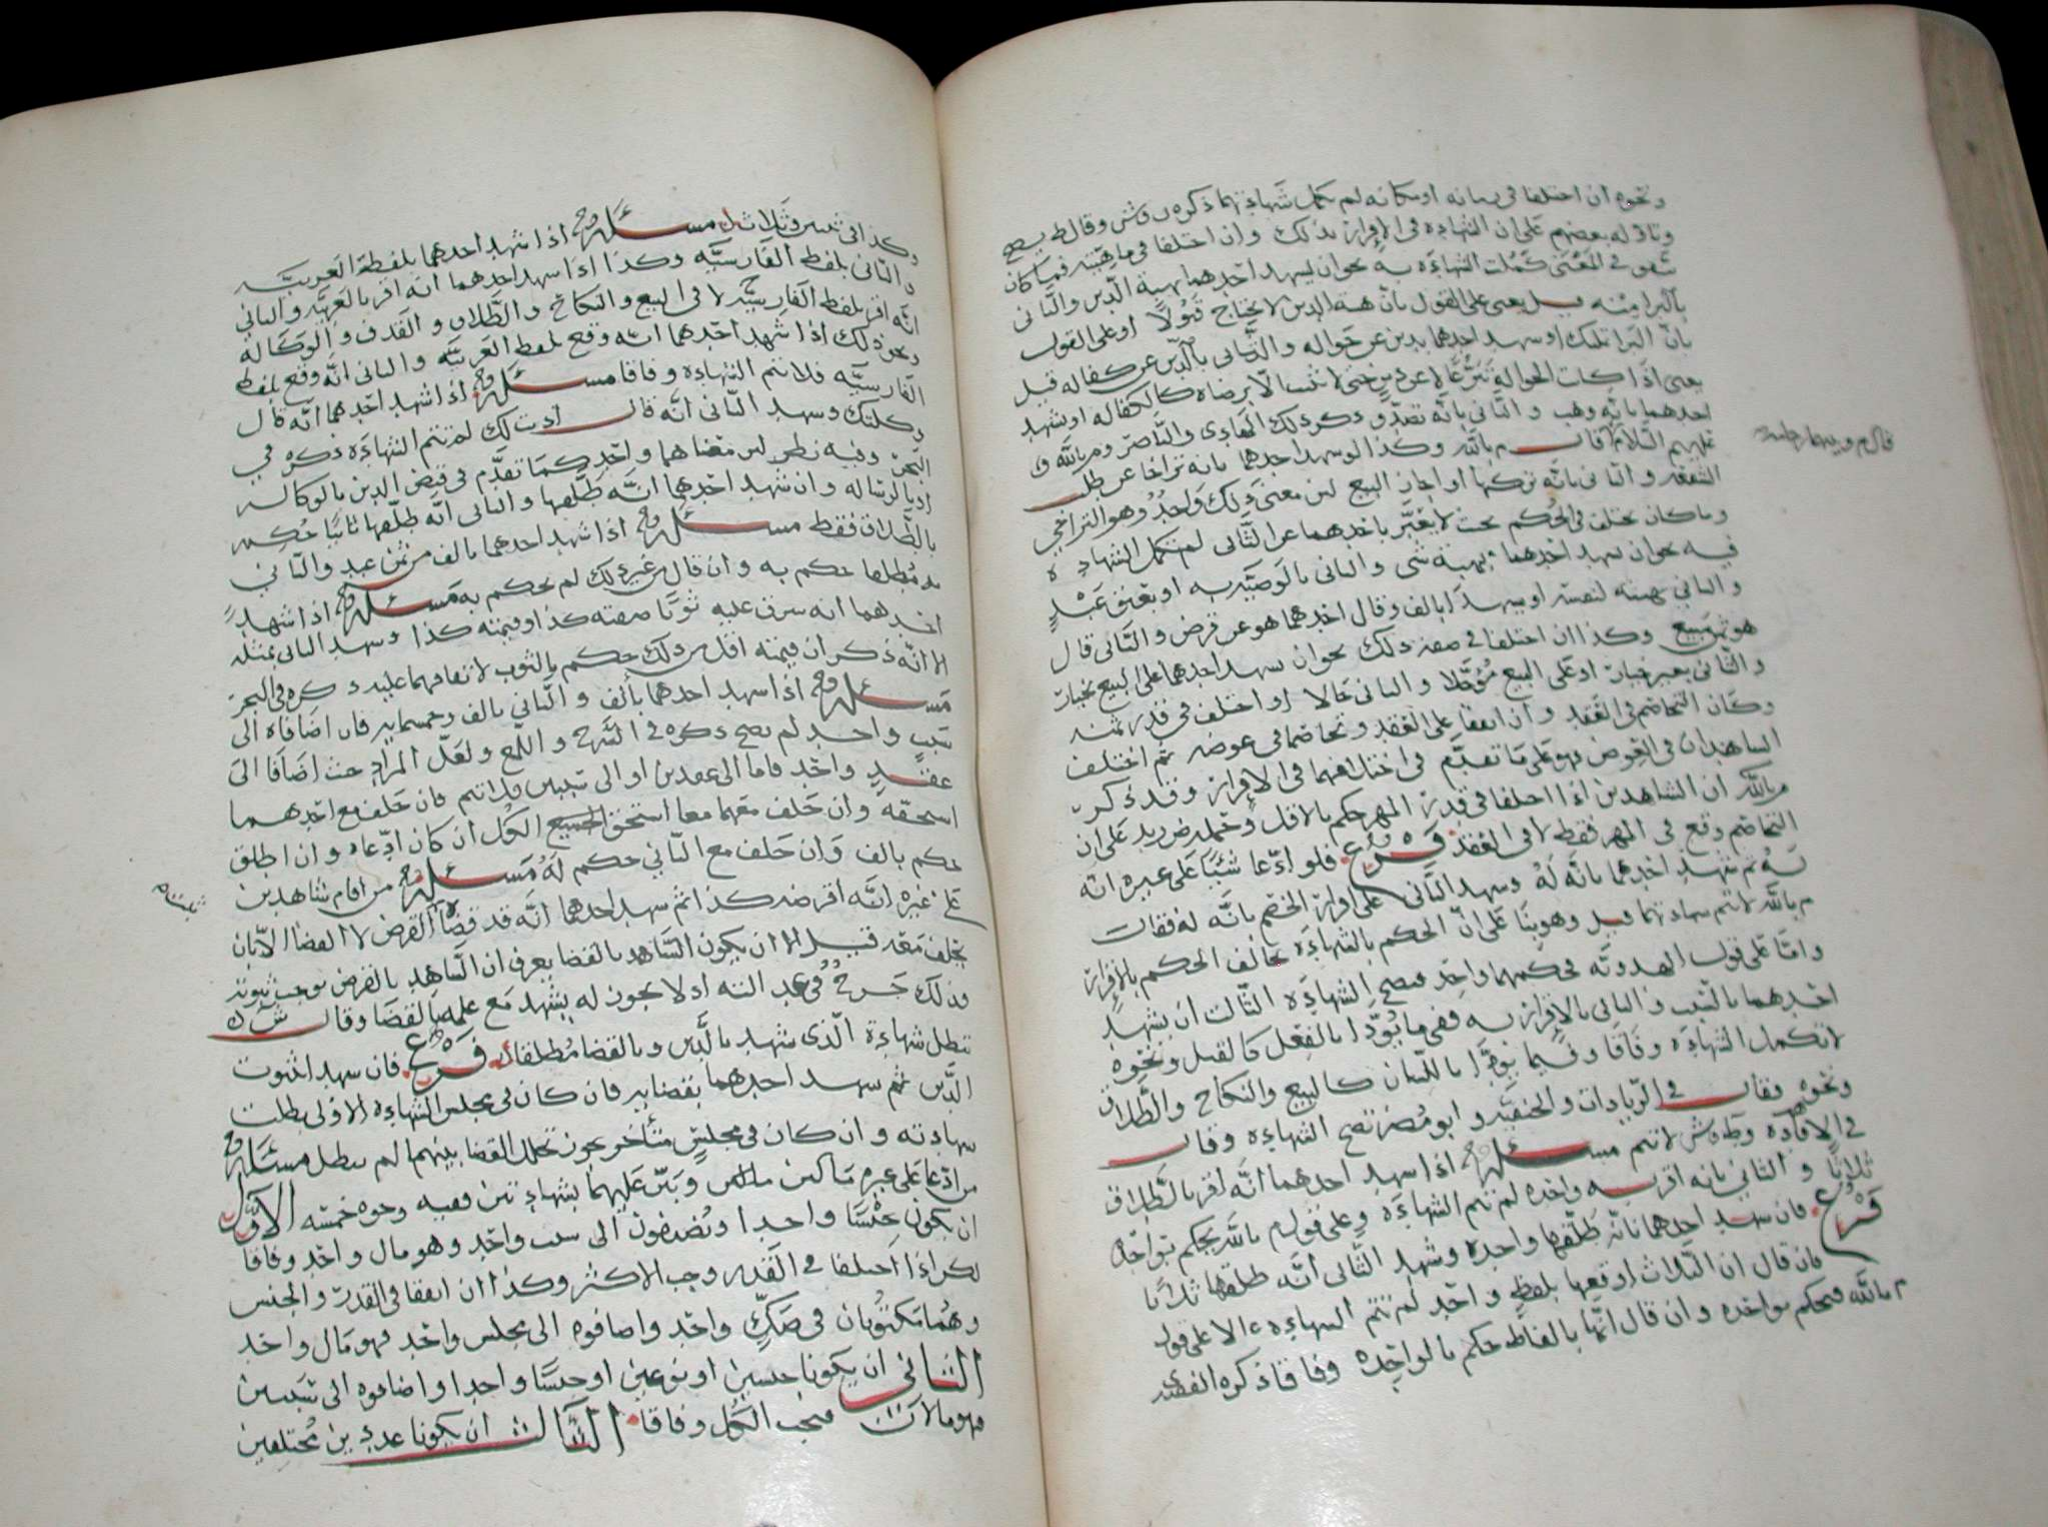 ونحوه ان اختلفا في زمانه او مكانه لم تكمل شهادتهما ذكره وقال يصح
وتاوله بعضهم على ان الشهاده في الإقرار بذلك وان اختلفا في ماهيته فما كان
متفق في المعنى كملت الشهاده به نحو ان يشهد احدهما بهبة الدين والثاني
بالبرا منه قيل يعني على القول بان هبة الدين لا يحتاج قبولا او على القول
بان البرا تمليك او شهد احدهما بدين عن حواله والثاني بالدين عن كفاله قيل
يعني اذا كانت الحواله تبرعا لا عن دين حتى لا تثبت الا برضاه كالكفاله او شهد
احدهما بانه وهب والثاني بانه تصدق وذكر ذلك الهادي والناصر وم بالله
عليهم السلام قال م بالله وكذا لو شهد احدهما بانه تراخا عن طلب
الشفعه والثاني بانه تركها او اجاز البيع لان معنى ذلك واحد وهو التراخي
وما كان يختلف في الحكم بحيث لا يعبر باحدهما عن الثاني لم تكمل الشهاده
فيه نحو ان يشهد احدهما بهبة شي والثاني بالوصيه به او بعتق عبد
والثاني بهبته لنفسه او يشهدا بالف وقال احدهما هو عن قرض والثاني قال
هو ثمن مبيع وكذا ان اختلفا في صفة ذلك نحو ان شهد احدهما على البيع بخيار
والثاني بغير خيار او على البيع مؤجلا والثاني حالا او اختلف في قدر ثمنه
وكان التخاصم في العقد وان اتفقا على العقد وتخاصما في عوضه ثم اختلف
الشاهدان في العوض فهو على ما تقدم في اختلافهما في الإقرار وقد ذكر
م بالله ان الشاهدين اذا اختلفا في قدر المهر حكم بالاقل وحمله ض زيد على ان
التخاصم وقع في المهر فقط لا في العقد فرع فلو ادعا شيئا على غيره انه
له ثم شهد احدهما بانه له وشهد الثاني على اقرار الخصم بانه له فقال
م بالله لا تتم شهادتهما قيل وهو بنا على ان الحكم بالشهاده يخالف الحكم بالإقرار
واما على قول الهدويه فحكمهما واحد فتصح الشهاده الثالث ان يشهد
احدهما بالشي والثاني بالإقرار به ففي ما يؤدا بالفعل كالقتل ونحوه
لا تكمل الشهاده وفاقا وفيما يؤدا باللسان كالبيع والنكاح والطلاق
ونحوه فقال في الزيادات والحنفيه وابو مضر تصح الشهاده وقال
في الافاده وط وش لا تتم مسئله اذا شهد احدهما انه اقر بالطلاق
ثلاثا والثاني بانه اقر به واحده لم تتم الشهاده وعلى قول م بالله يحكم بواحده
فرع فان شهد احدهما بانه طلقها واحده وشهد الثاني انه طلقها ثلاثا
فان قال ان الثلاث اوقعها بلفظ واحد لم تتم الشهاده الا على قول
م بالله فيحكم بواحده وان قال انها بالفاظ حكم بالواحده وفاقا ذكره الفقيه
وكذا في ثنتين وثلاث مسئله اذا شهد احدهما بلفظة العربيه
والثاني بلفظ الفارسيه وكذا اذا شهد احدهما انه اقر بالعربيه والثاني
انه اقر بلفظ الفارسيه لا في البيع والنكاح والطلاق والقذف والوكاله
ونحو ذلك اذا شهد احدهما انه وقع بلفظ العربيه والثاني انه وقع بلفظ
الفارسيه فلا تتم الشهاده وفاقا مسئله اذا شهد احدهما انه قال
وكلتك وشهد الثاني انه قال اذنت لك لم تتم الشهاده ذكره في
البحر وفيه نظر لان معناهما واحد كما تقدم في قبض الدين بالوكاله
او بالرساله وان شهد احدهما انه طلقها والثاني انه طلقها ثانيا حكم
بالطلاق فقط مسئله اذا شهد احدهما بالف من ثمن عبد والثاني
به مطلقا حكم به وان قال من غير ذلك لم يحكم به مسئله اذا شهد
احدهما انه سرق عليه ثوبا صفته كذا وقيمته كذا وشهد الثاني بمثله
الا انه ذكر ان قيمته اقل من ذلك حكم بالثوب لاتفاقهما عليه ذكره في البحر
مسئله اذا شهد احدهما بالف والثاني بالف وخمسمايه فان اضافاه الى
سبب واحد لم يصح ذكره في الشرح واللمع ولعل المراد حيث اضافا الى
عقد واحد فاما الى عقدين او الى سببين فلا تتم فان حلف مع احدهما
استحقه وان حلف معهما معا استحق الكل ان كان ادعاه وان اطلق
حكم بالف وان حلف مع الثاني حكم له مسئله من اقام شاهدين
على غيره انه اقرضه كذا ثم شهد احدهما انه قد قضاه القرض لا القضا الا بان
يحلف معه قيل الا ان يكون الشاهد بالقضا يعرف ان الشاهد بالقرض يوجب ثبوته
فذلك جرح في عدالته اذ لا يجوز له يشهد مع علمه بالقضا وقال ش ك
تبطل شهادة الذي شهد بالدين وبالقضا مطلقا فرع فان شهد اثبوت
الدين ثم شهد احدهما بقضايه فان كان في مجلس الشهاده الاولى بطلت
شهادته وان كان في مجلس متاخر يجوز تخلل القضا بينهما لم تبطل مسئله
من ادعا على غيره مالين وبين عليهما بشهادتين ففيه وجوه خمسه الاول
ان يكون جنسا واحدا ويضيفون الى سبب واحد وهو مال واحد وفاقا
لكن اذا اختلفا في القدر وجب الاكثر وكذا ان اتفقا في القدر والجنس
وهما مكتوبان في صك واحد واضافوه الى مجلس واحد فهو مال واحد
الثاني ان يكونا جنسين او نوعين او جنسا واحدا واضافوه الى سببين
فهو مالان فيجب الكل وفاقا الثالث ان يكونا عددين مختلفين